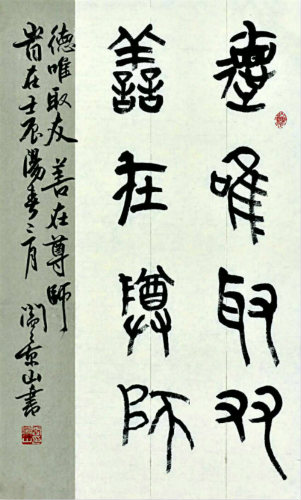 德唯取友
善在尊師
德唯取友 善在尊師
旹在壬辰陽春三月 閻景山書